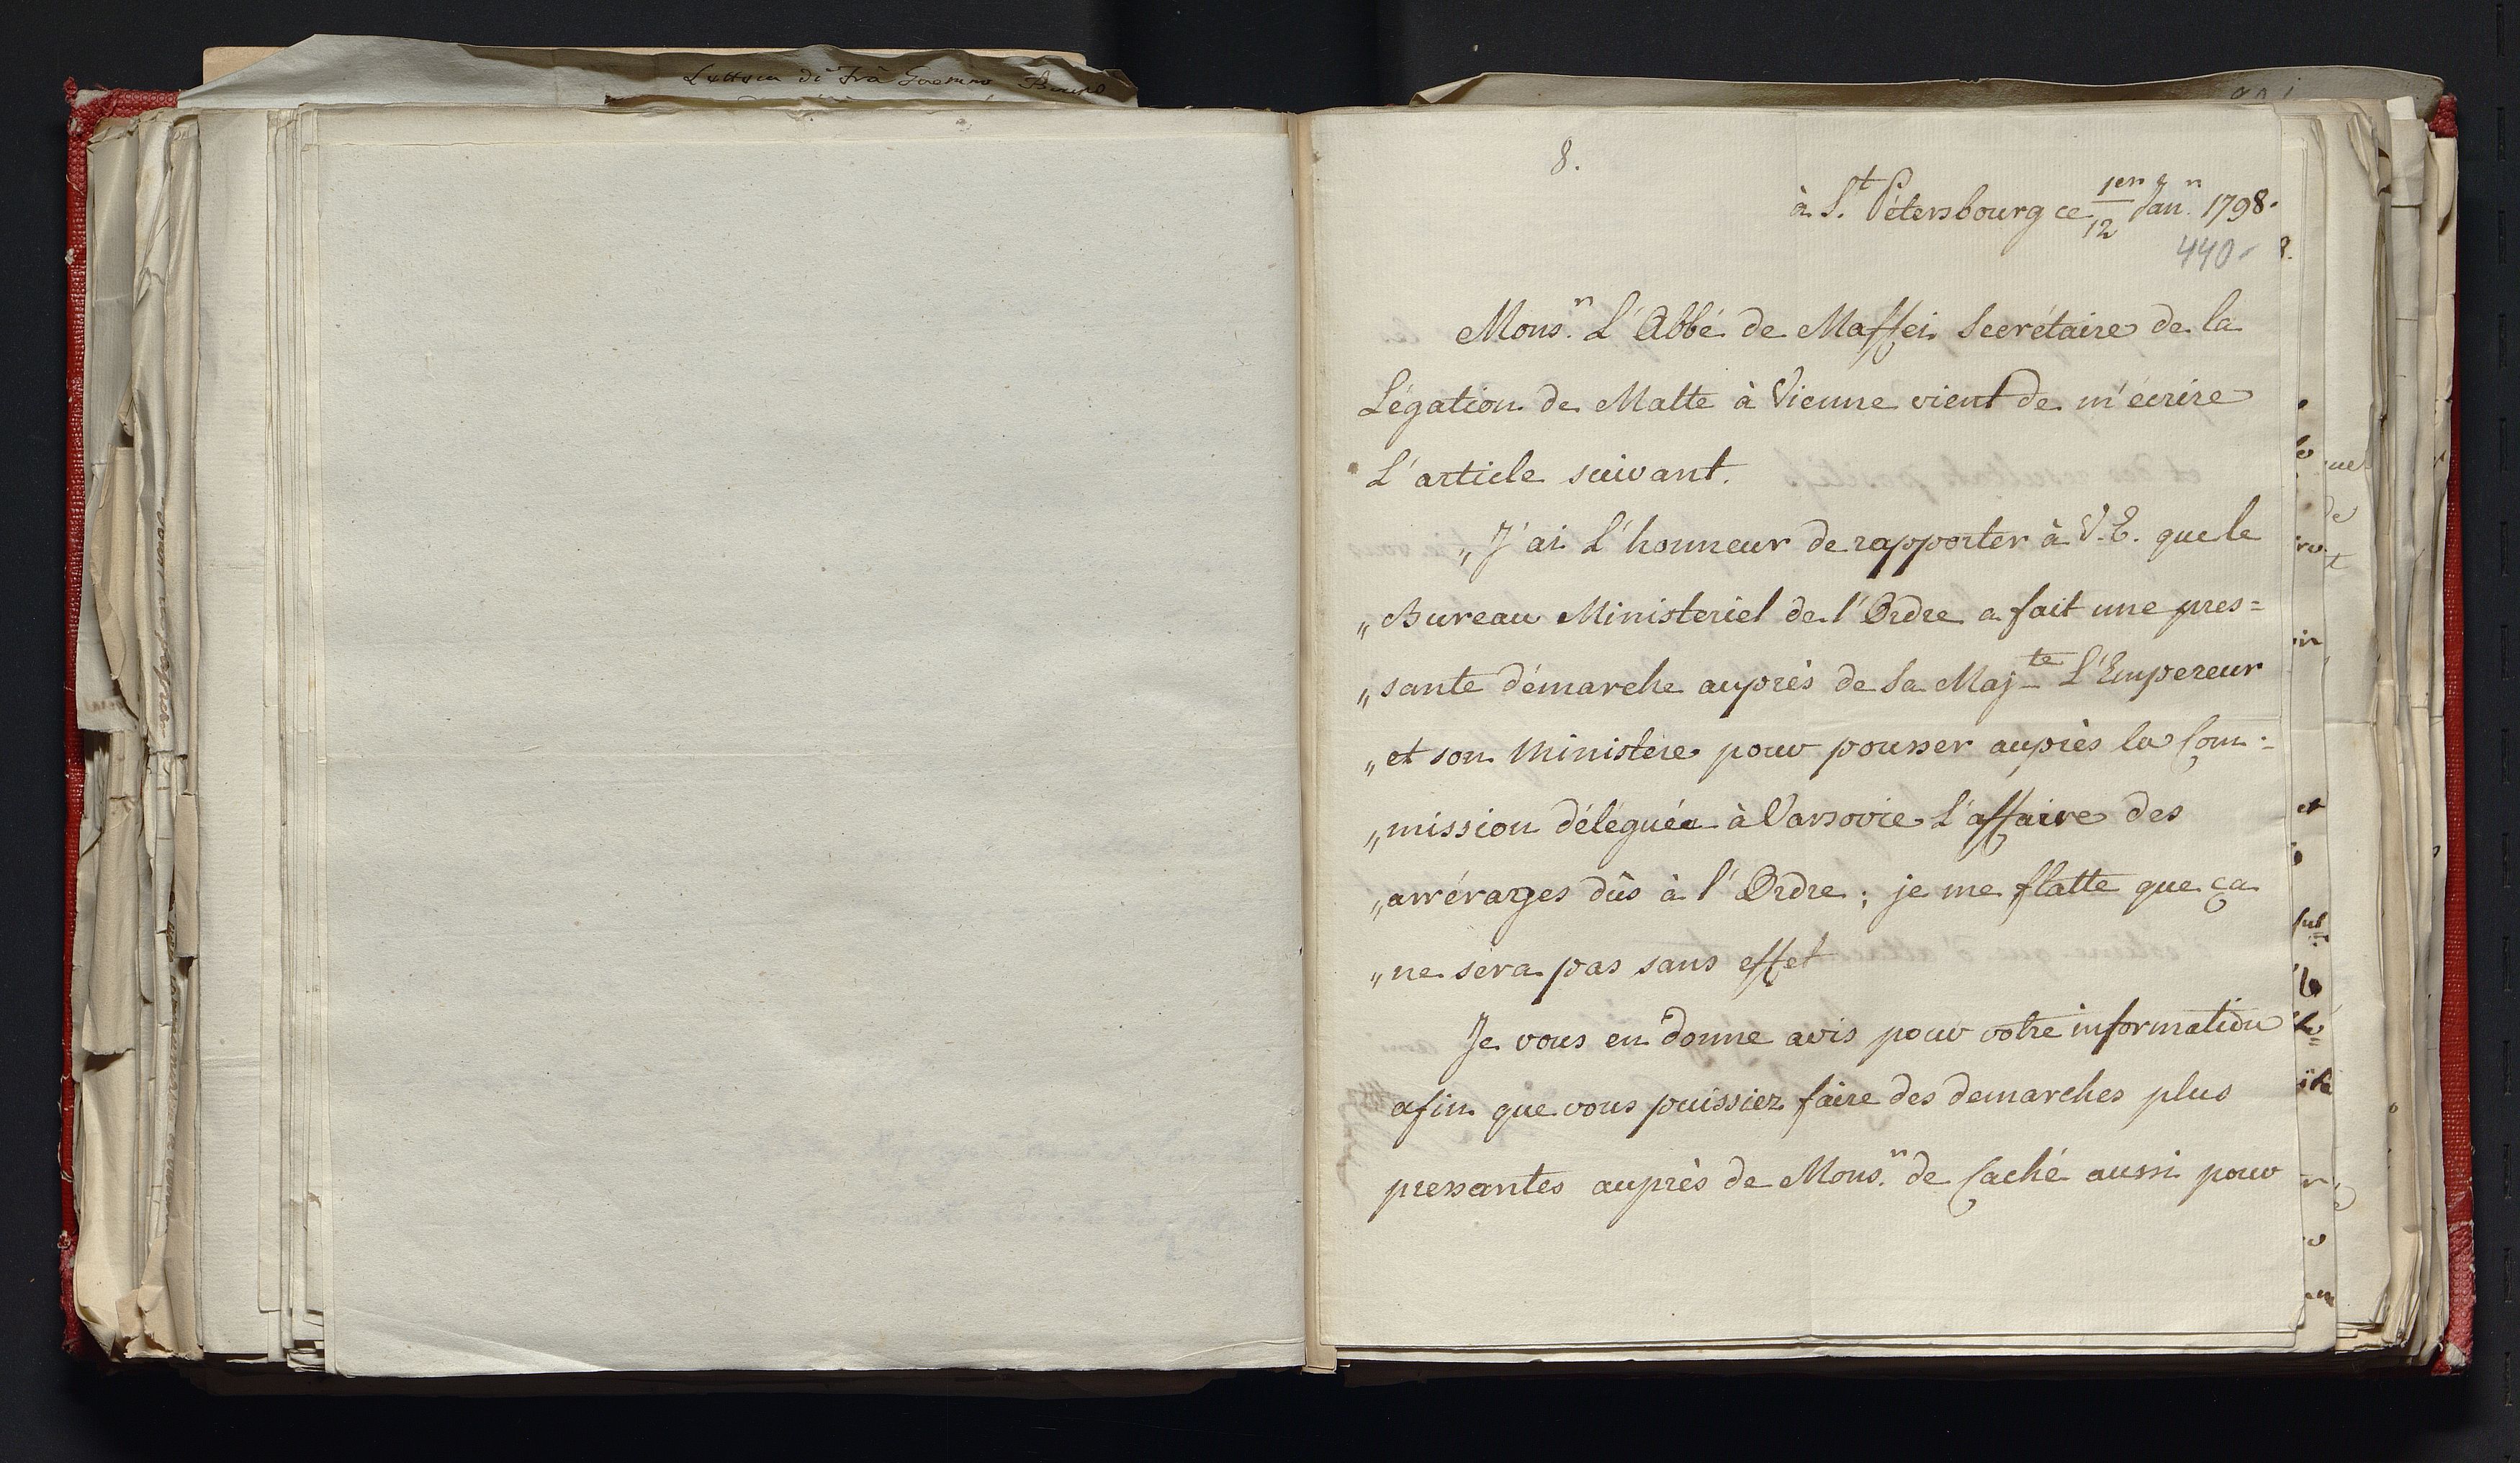 8.
à S.t Pétersbourg ce 1er/12 Janr. 1798.
440
Monsr. L'Abbé de Maffei Secrétaire de la
Légation de Malte à Vienne vient de m'écrire
L'article suivant.
„J'ai L'honneur de rapporter à V.E. que le
„Bureau Ministeriel de l'Ordre a fait une pres=
„sante démarche auprès de Sa Majte L'Empereur
„et son Ministère pour pousser auprès la Com=
„mission déléguée à Varsovie L'affaire des
„arrérages dûs à l'Ordre; je me flatte que ça
„ne sera pas sans effet
Je vous en donne avis pour votre information
afin que vous puissiez faire des demarches plus
pressantes auprès de Monsr. de Caché aussi pour